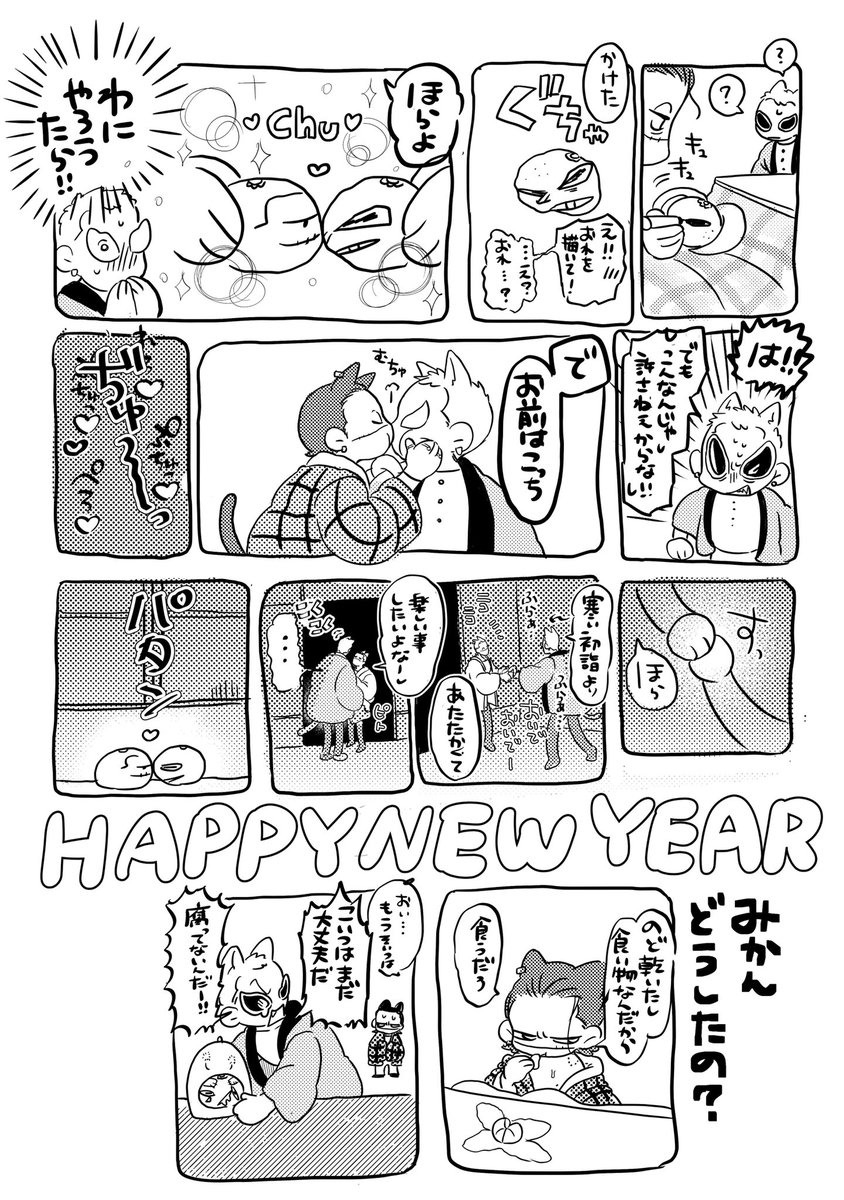 ?
?
キュ
キュ
かけた
ぐちゃ
え!!
おれを
描いて!
…え?
おれ…?
ほらよ
Chu
わに
やろつ
たら!!
は!!
でも
こんなんじゃ
許さねえからな!!
で
お前はこっち
むちゅ
ぢゅ〜〜っ
ちゅ
ぷちゅ
ぺろ
すっ
ほら
寒い初詣より
ふらぁ
ふらぁ…
おいで
おいでー
あたたかくて
楽しい事
したいよなー
…
ピト
パタン
HAPPY NEW YEAR
みかん
どうしたの?
のど乾いたし
食い物なんだから
食うだろ
おい…
もうそいつは
こいつはまだ
大丈夫だ
腐ってないんだー!!